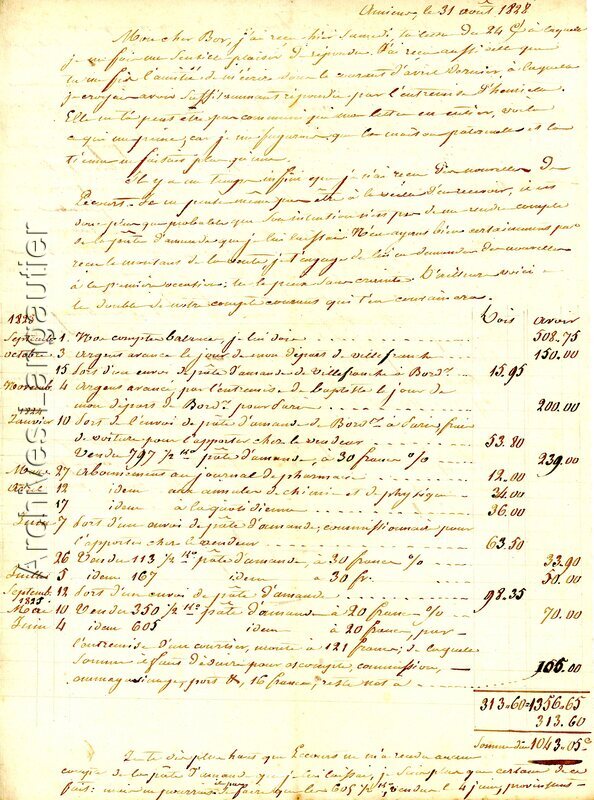 Amiens, le 31 août 1828
Mon cher Bor, j'ai reçu hier samedi, ta lettre du 24 Ct à laquelle
je me fais un sensible plaisir de répondre. J'ai reçu aussi celle que
tu me fis l'amitié de m'écrire dans le courant d'avril dernier, à laquelle
je croyais avoir suffisamment répondu par l'entremise d'
Elle ne t'a peut être pas communiqué ma lettre en entier, voilà
ce qui me peine; car je me figurais que la maison paternelle et la
tienne ne faisait plus qu'une.
Il y a un temps infini que je n'ai reçu des nouvelles de
Lecourt. de
donc plus que probable que son intention n'est pas de me rendre compte
de la pâte d'amande que je lui laissai. N'en ayant bien certainement pas
reçu le montant de la vente, je t'engage de lui en demander des nouvelles
à la première occasion; tu le peux sans crainte. D'ailleurs voici
le double de notre compte courant qui t'en convaincra.
1828 Dois avoir
Septembre 1. Nos comptes balancés, je lui dois 508.75
Octobre 3 Argent avancé le jour de mon départ de Villefranche 150.00
15 Port d'un envoi de pâte d'amande de Villefranche à Bordx 15.95
Novemb. 4 Argent avancé par l'entremise de baptiste le jour de
mon départ de Bordx pour Paris 200.00
Janvier 10 Port de l'envoi de pâte d'amande de Bordx à Paris frais
de voiture pour l'apporter chez le vendeur 53.80
Vendu 797 1/2 pâte d'amande, à 30 francs % 239.00
Mars 27 Abonnement au journal de pharmacie 12.00
Avril 12 idem aux annales de chimie et de physique 24.00
17 idem à la quotidienne 36.00
Juin 7 Port d'un envoi de pâte d'amande; commissionnaire pour
l'apporter chez le vendeur 63.50
26 Vendu 113 1/2 pâte d'amande, à 30 francs % 33.90
Juillet 5 idem 167 idem à 30 fr. 50.00
Septemb. 12 Port d'un envoi de pâte d'amande 98.35
1825
Mai 10 Vendu 350 1/2 pâte d'amande à 20 francs % 70.00
Juin 4 idem 605 idem à 20 francs, par
l'entremise d'un courtier, monte à 121 francs; de laquelle
somme il faut déduire pour escompte, commission,
emmagasinage, port &, 16 francs, reste net à 105.00
313.60 1356.65
313.60
Somme due 1043.05
Je te dis plus haut que Lecourt ne m'a rendu aucun
compte de la pâte d'amande que je lui laissai, je suis plus que certain de ce
fait: les 605 vendus le 4 juin,
Archives Langautier